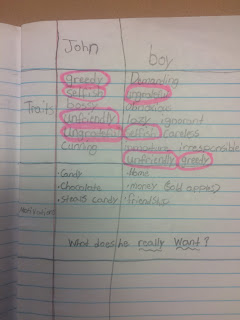 John boy
greedy Demanding
selfish ungrateful
Traits bossy obnoxious
unfriendly lazy ignorant
Ungrateful selfish careless
Cunning irresponsible
unfriendly greedy
•Candy •Home
•Chocolate •money (sold apples)
•steals candy •friendship
Motivations
What does he really want?